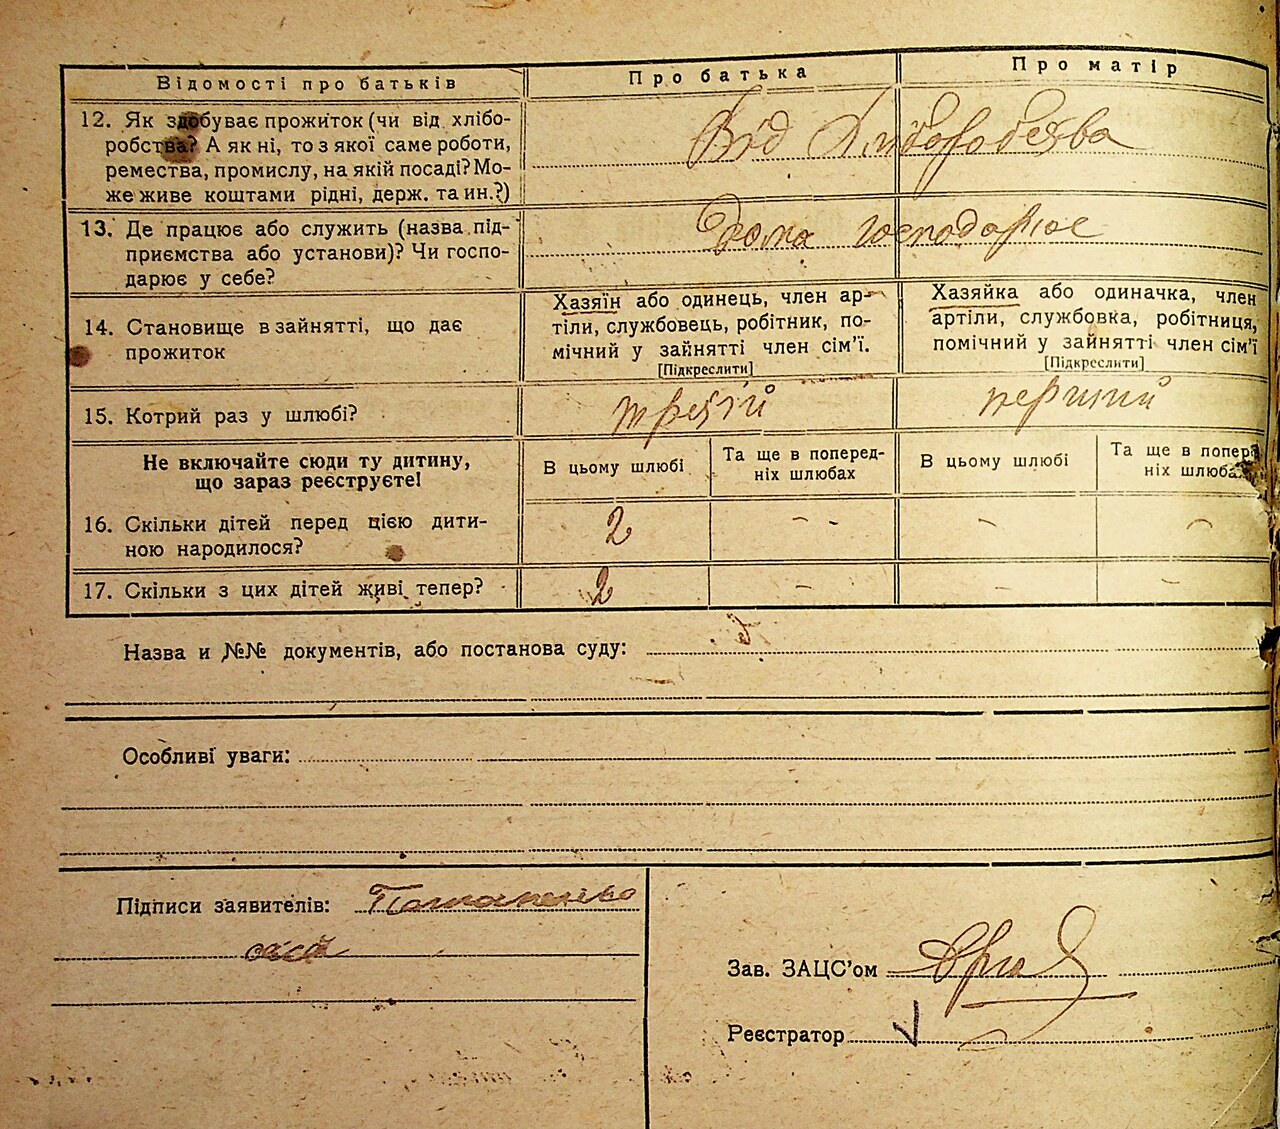 Відомості про батьків
Про батька
Про матір
12. Як здобуває прожиток (чи від хлібо-
робства? А як ні, то з якої саме роботи,
ремества, промислу, на якій посаді? Мо-
же живе коштами рідні, держ. та ин.?)
Від Хліборобства
13. Де працює або служить (назва під-
приємства або установи)? Чи госпо-
дарює у себе?
Дома господарює
14. Становище в зайнятті, що дає
прожиток
Хазяїн або одинець, член ар-
тіли, службовець, робітник, по-
мічний у зайнятті член сім’ї.
[Підкреслити]
Хазяйка або одиначка, член
артіли, службовка, робітниця,
помічний у зайнятті член сім’ї
[Підкреслити]
15. Котрий раз у шлюбі?
третій
перший
Не включайте сюди ту дитину,
що зараз реєструєте!
В цьому шлюбі
Та ще в поперед-
ніх шлюбах
В цьому шлюбі
Та ще в попер
ніх шлюба
16. Скільки дітей перед цією дити-
ною народилося?
2 - - - -
17. Скільки з цих дітей живі тепер?
2 - - -
Назва и №№ документів, або постанова суду:
Особливі уваги:
Підписи заявителів: Потапенко
Зав. ЗАЦС’ом
Реєстратор